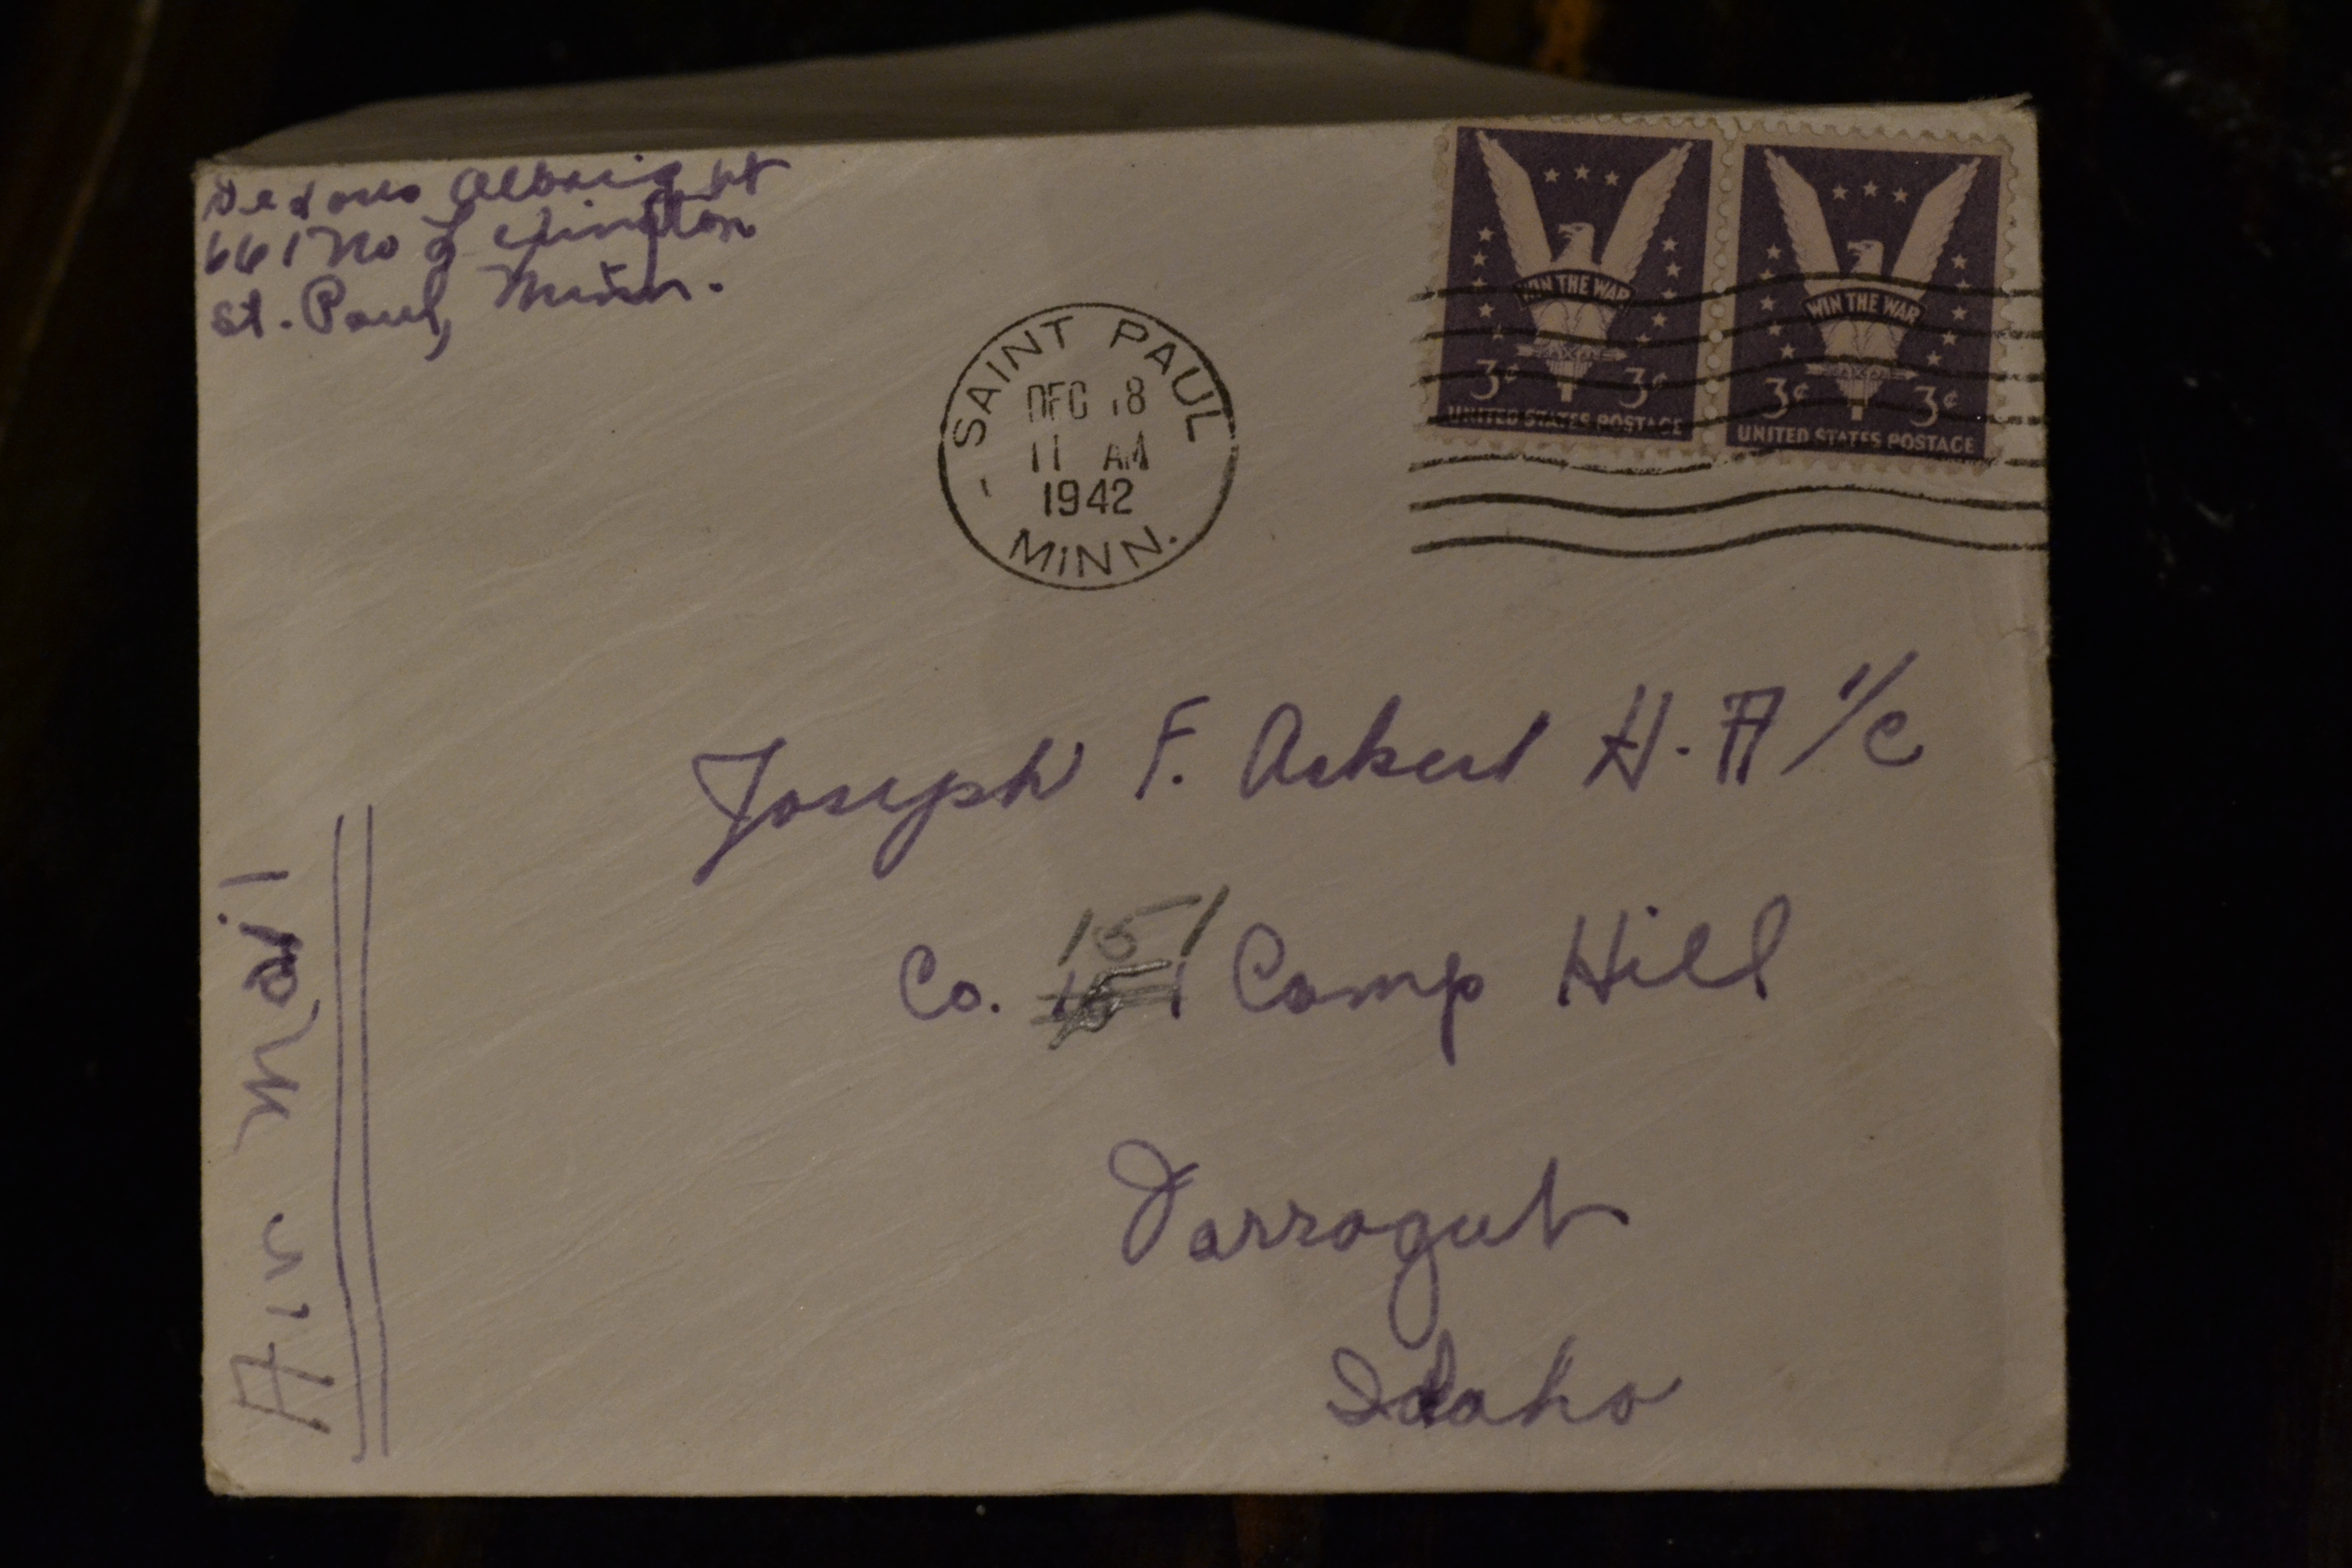 Delores Albright
661 No Lexington
St. Paul, Minn.
SAINT PAUL
DEC 18
11 AM
1942
MINN.
WIN THE WAR
3¢ 3¢
UNITED STATES POSTAGE
WIN THE WAR
3¢ 3¢
UNITED STATES POSTAGE
Joseph F. Ackerl H.A 1/c
151
Co. Camp Hill
Farragut
Idaho
Air Mail